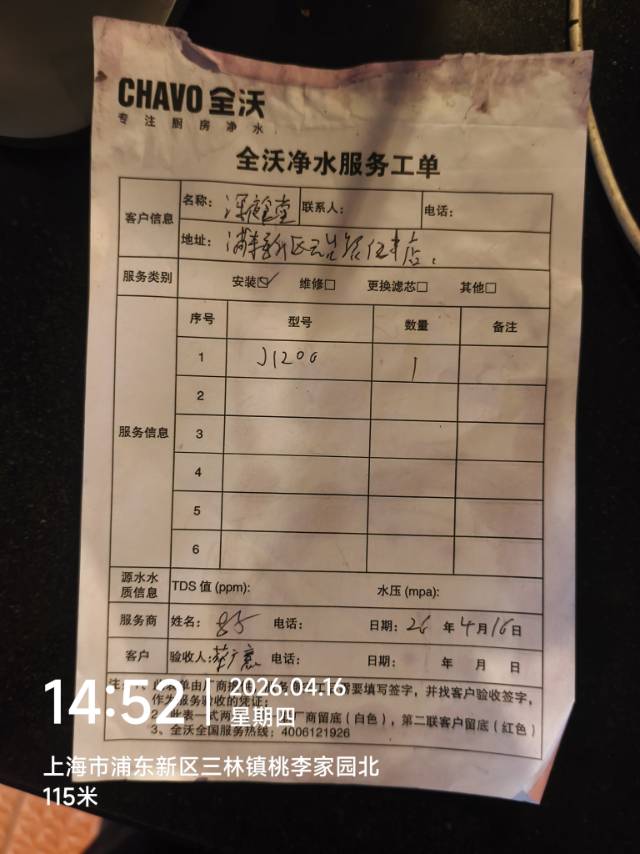 CHAVO 全沃
专注厨房净水
全沃净水服务工单
客户信息 名称： 联系人： 电话：
地址：浦东新区 店.
服务类别 安装☑ 维修□ 更换滤芯□ 其他□
服务信息 序号 型号 数量 备注
1 J1200 1
2
3
4
5
6
源水水质信息 TDS 值 (ppm): 水压 (mpa):
服务商 姓名： 电话： 日期：26 年 4 月 16 日
客户 验收人： 电话： 日期： 年 月 日
需要填写签字，并找客户验收签字，
作为服务验收的凭证；
厂商留底（白色），第二联客户留底（红色）
3、全沃全国服务热线：4006121926
14:52 2026.04.16
星期四
上海市浦东新区三林镇桃李家园北
115米